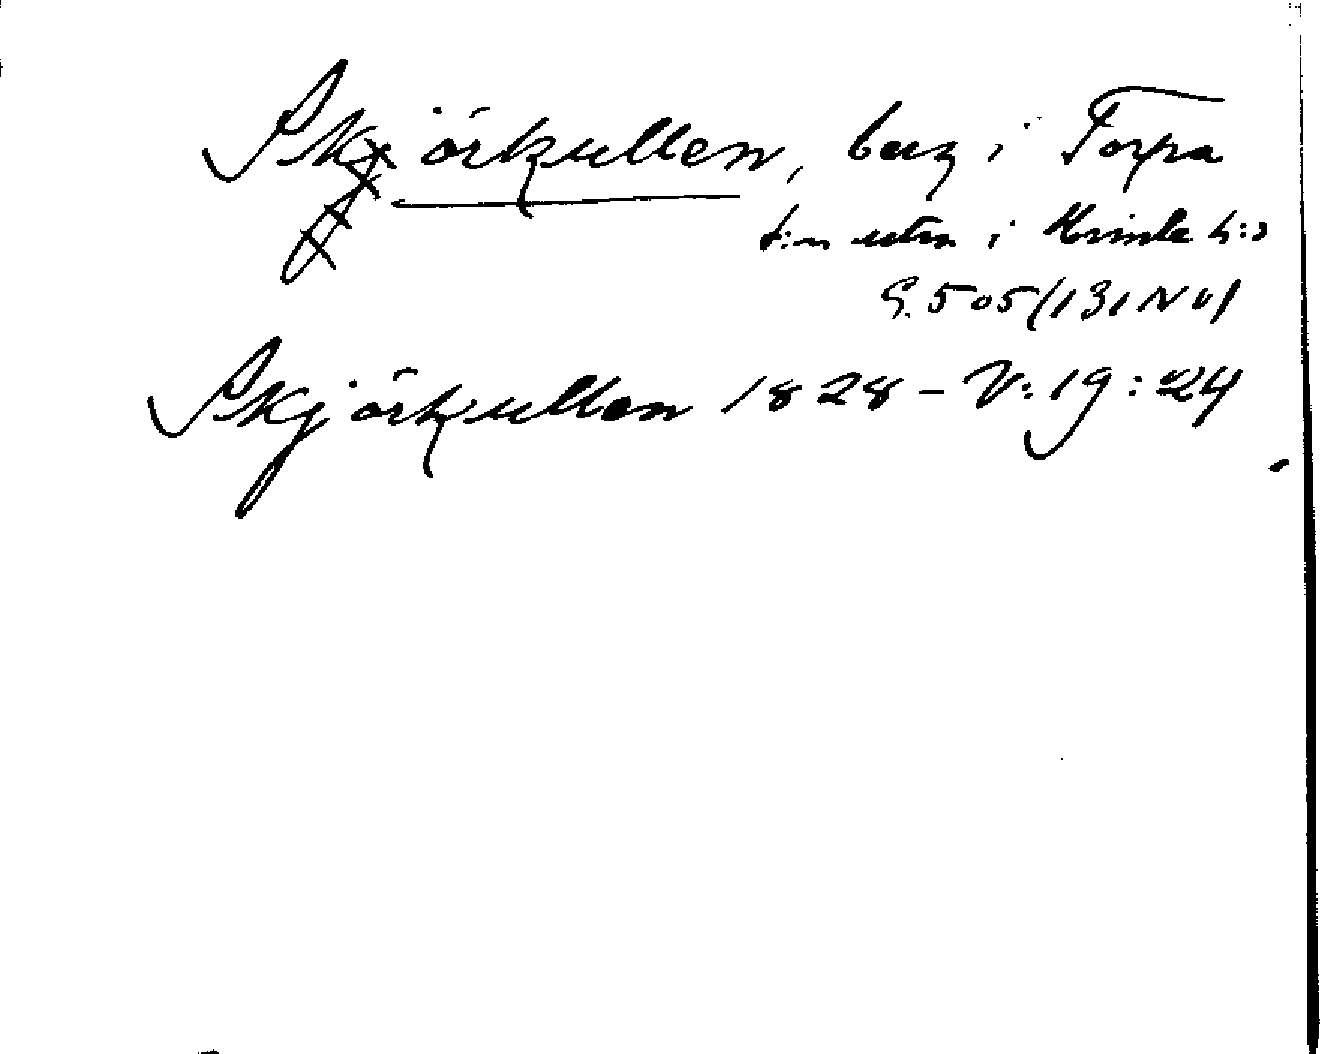 Skjörkullen, berg i Torpa
s:n utm i Kinda h:d
G. 505 (131 NV)
Skjörkullen 1828 – V: 19: 24